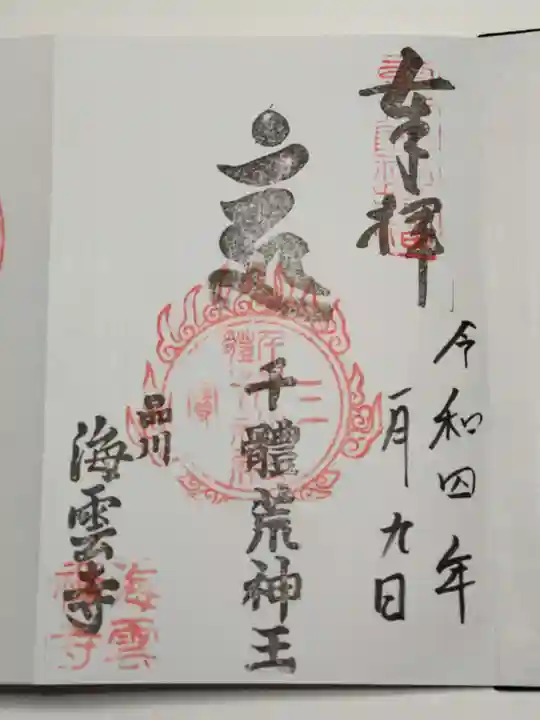 奉拝
令和四年
一月九日
千體荒神王
品川
海雲寺
海雲
禅寺